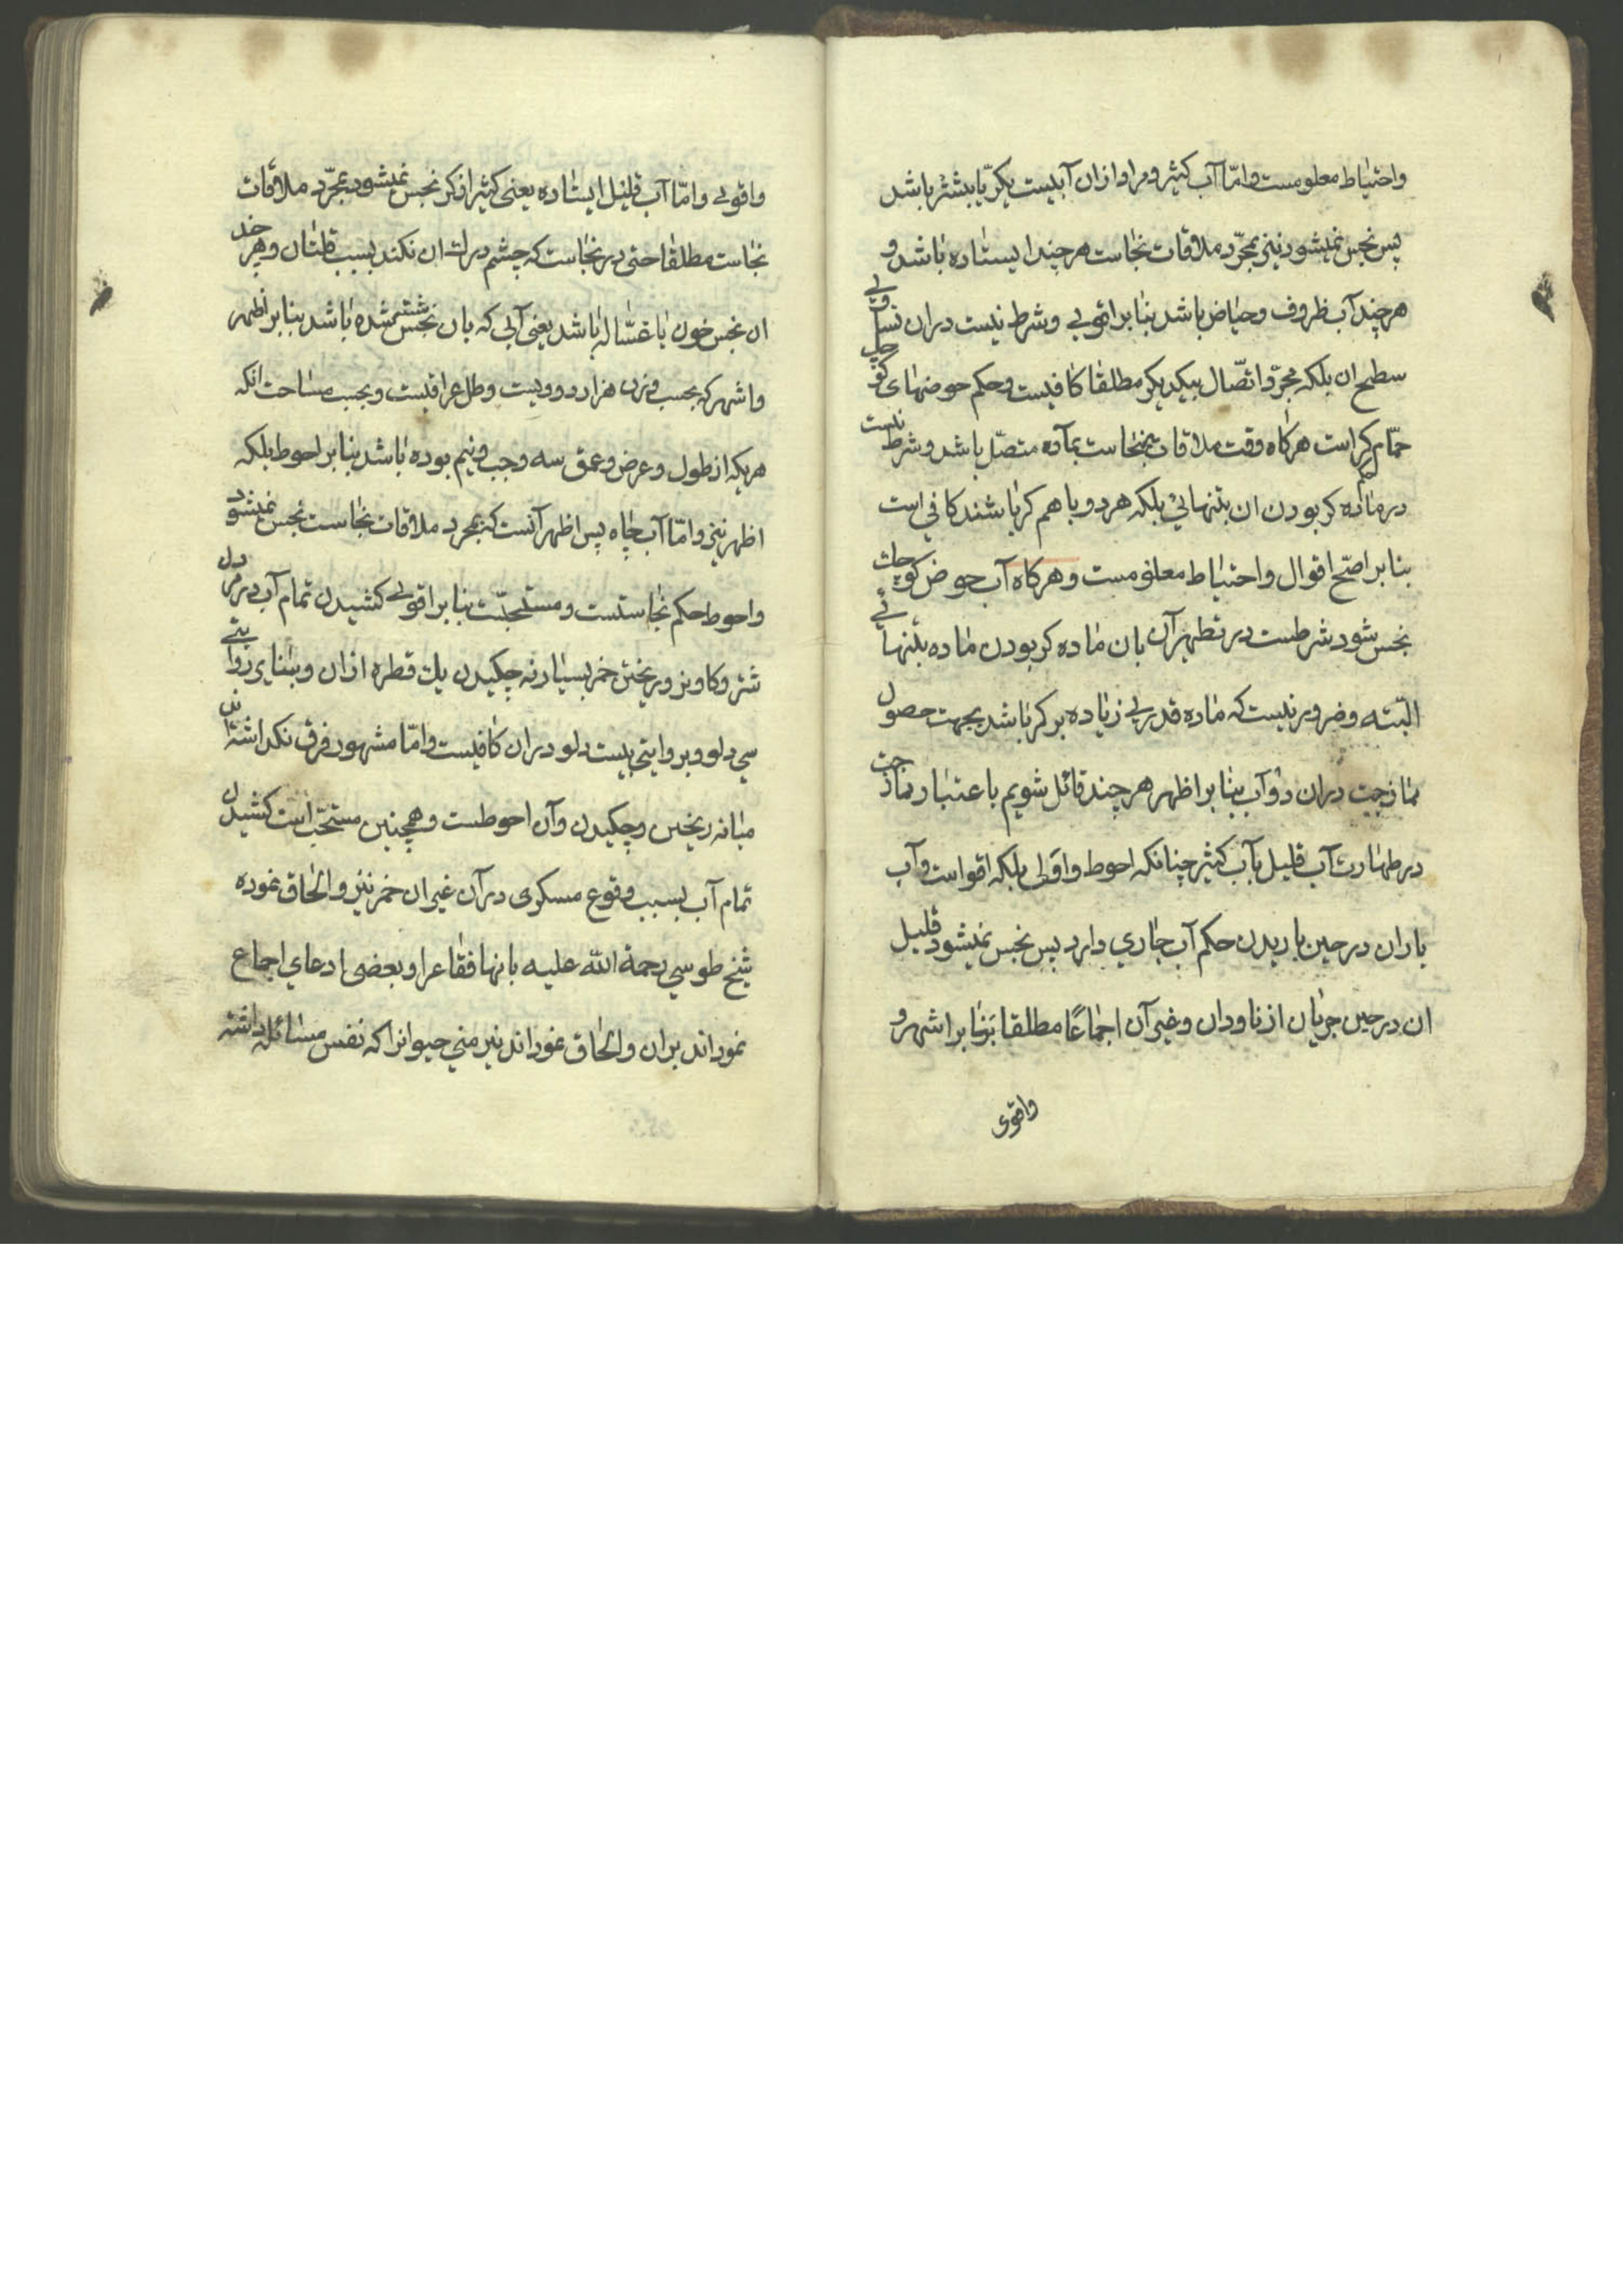 واحتیاط معلومست و امّا آب کثیر و مراد ازان آبیست یکرّ یا بیشتر باشد
پس نجس نمیشود نیز بمجرّد ملاقات نجاست هر چند ایستاده باشد و
هر چند آب ظروف و حیاض باشد بنا بر اقوی و شرط نیست دران تساوی
سطیح ان بلکه مجرّد اتّصال بیکدیکر مطلقا کافیست و حکم حوضهای کوچک
حمّام کر است هرکاه وقت ملاقات بنجاست بمآده متصّل باشد و شرط نیست
در ماده کر بودن ان بتنهائی بلکه هر دو با هم کر باشند کافی است
بنا بر اصّح اقوال و احتیاط معلومست و هرکاه آب حوض کوچک
نجس شود شرطست در تطهیر آن بان ماده کر بودن ماده بتنهائی
البتّه و ضرور نیست که ماده قدری زیاده بر کر باشد بجهت حصول
ممازجت دران دو آب بنا بر اظهر هر چند قائل شویم باعتبار ممازجت
در طهارت آب قلیل بآب کثیر چنانکه احوط و اولی بلکه اقواست و آب
باران در حین باریدن حکم آب جاری دارد پس نجس نمیشود قلیل
ان در حین جریان از ناودان و غیر آن اجماعًا مطلقا بنا بر اشهر و
واقوی
واقوی و امّا آب قلیل ایستاده یعنی کمتر از کر نجس میشود بمجرّد ملاقات
نجاست مطلقا حتی در نجاست که چشم درک ان نکند بسبب قلتان و هر چند
ان نجس خون یا غسّاله باشد یعنی آبی که بان نجس شسته شده باشد بنا بر اظهر
و اشهر کر بحسب وزن هزار و دویست رطل عراقیست و بحسب مساحت انکه
هر یکه از طول و عرض و عمق سه وجب و نیم بوده باشد بنا بر احوط بلکه
اظهر نیز و امّا آب چاه پس اظهر آنست که بمجرد ملاقات نجاست نجس نمیشود
و احوط حکم نجاستست و مستحبّست بنا بر اقوی کشیدن تمام آب در مردن
شتر و کاو نر و ریختن خمر بسیار نه چکیدن یك قطره ازان و بنای روایتی
سی دلو و بروایتی بیست دلو دران کافیست و امّا مشهور فرق نکذاشته‌اند
میانه ریختن و چکیدن و آن احوطست و همچنین مستحبّ است کشیدن
تمام آب بسبب وقوع مسکری در آن غیر ان خمر نیز و الحاق نموده
شیخ طوسی رحمة الله علیه بانها فقاع را و بعضی ادعای اجماع
نموداند بران و الحاق نموداند نیز منی حیوانرا که نفس سائله داشته